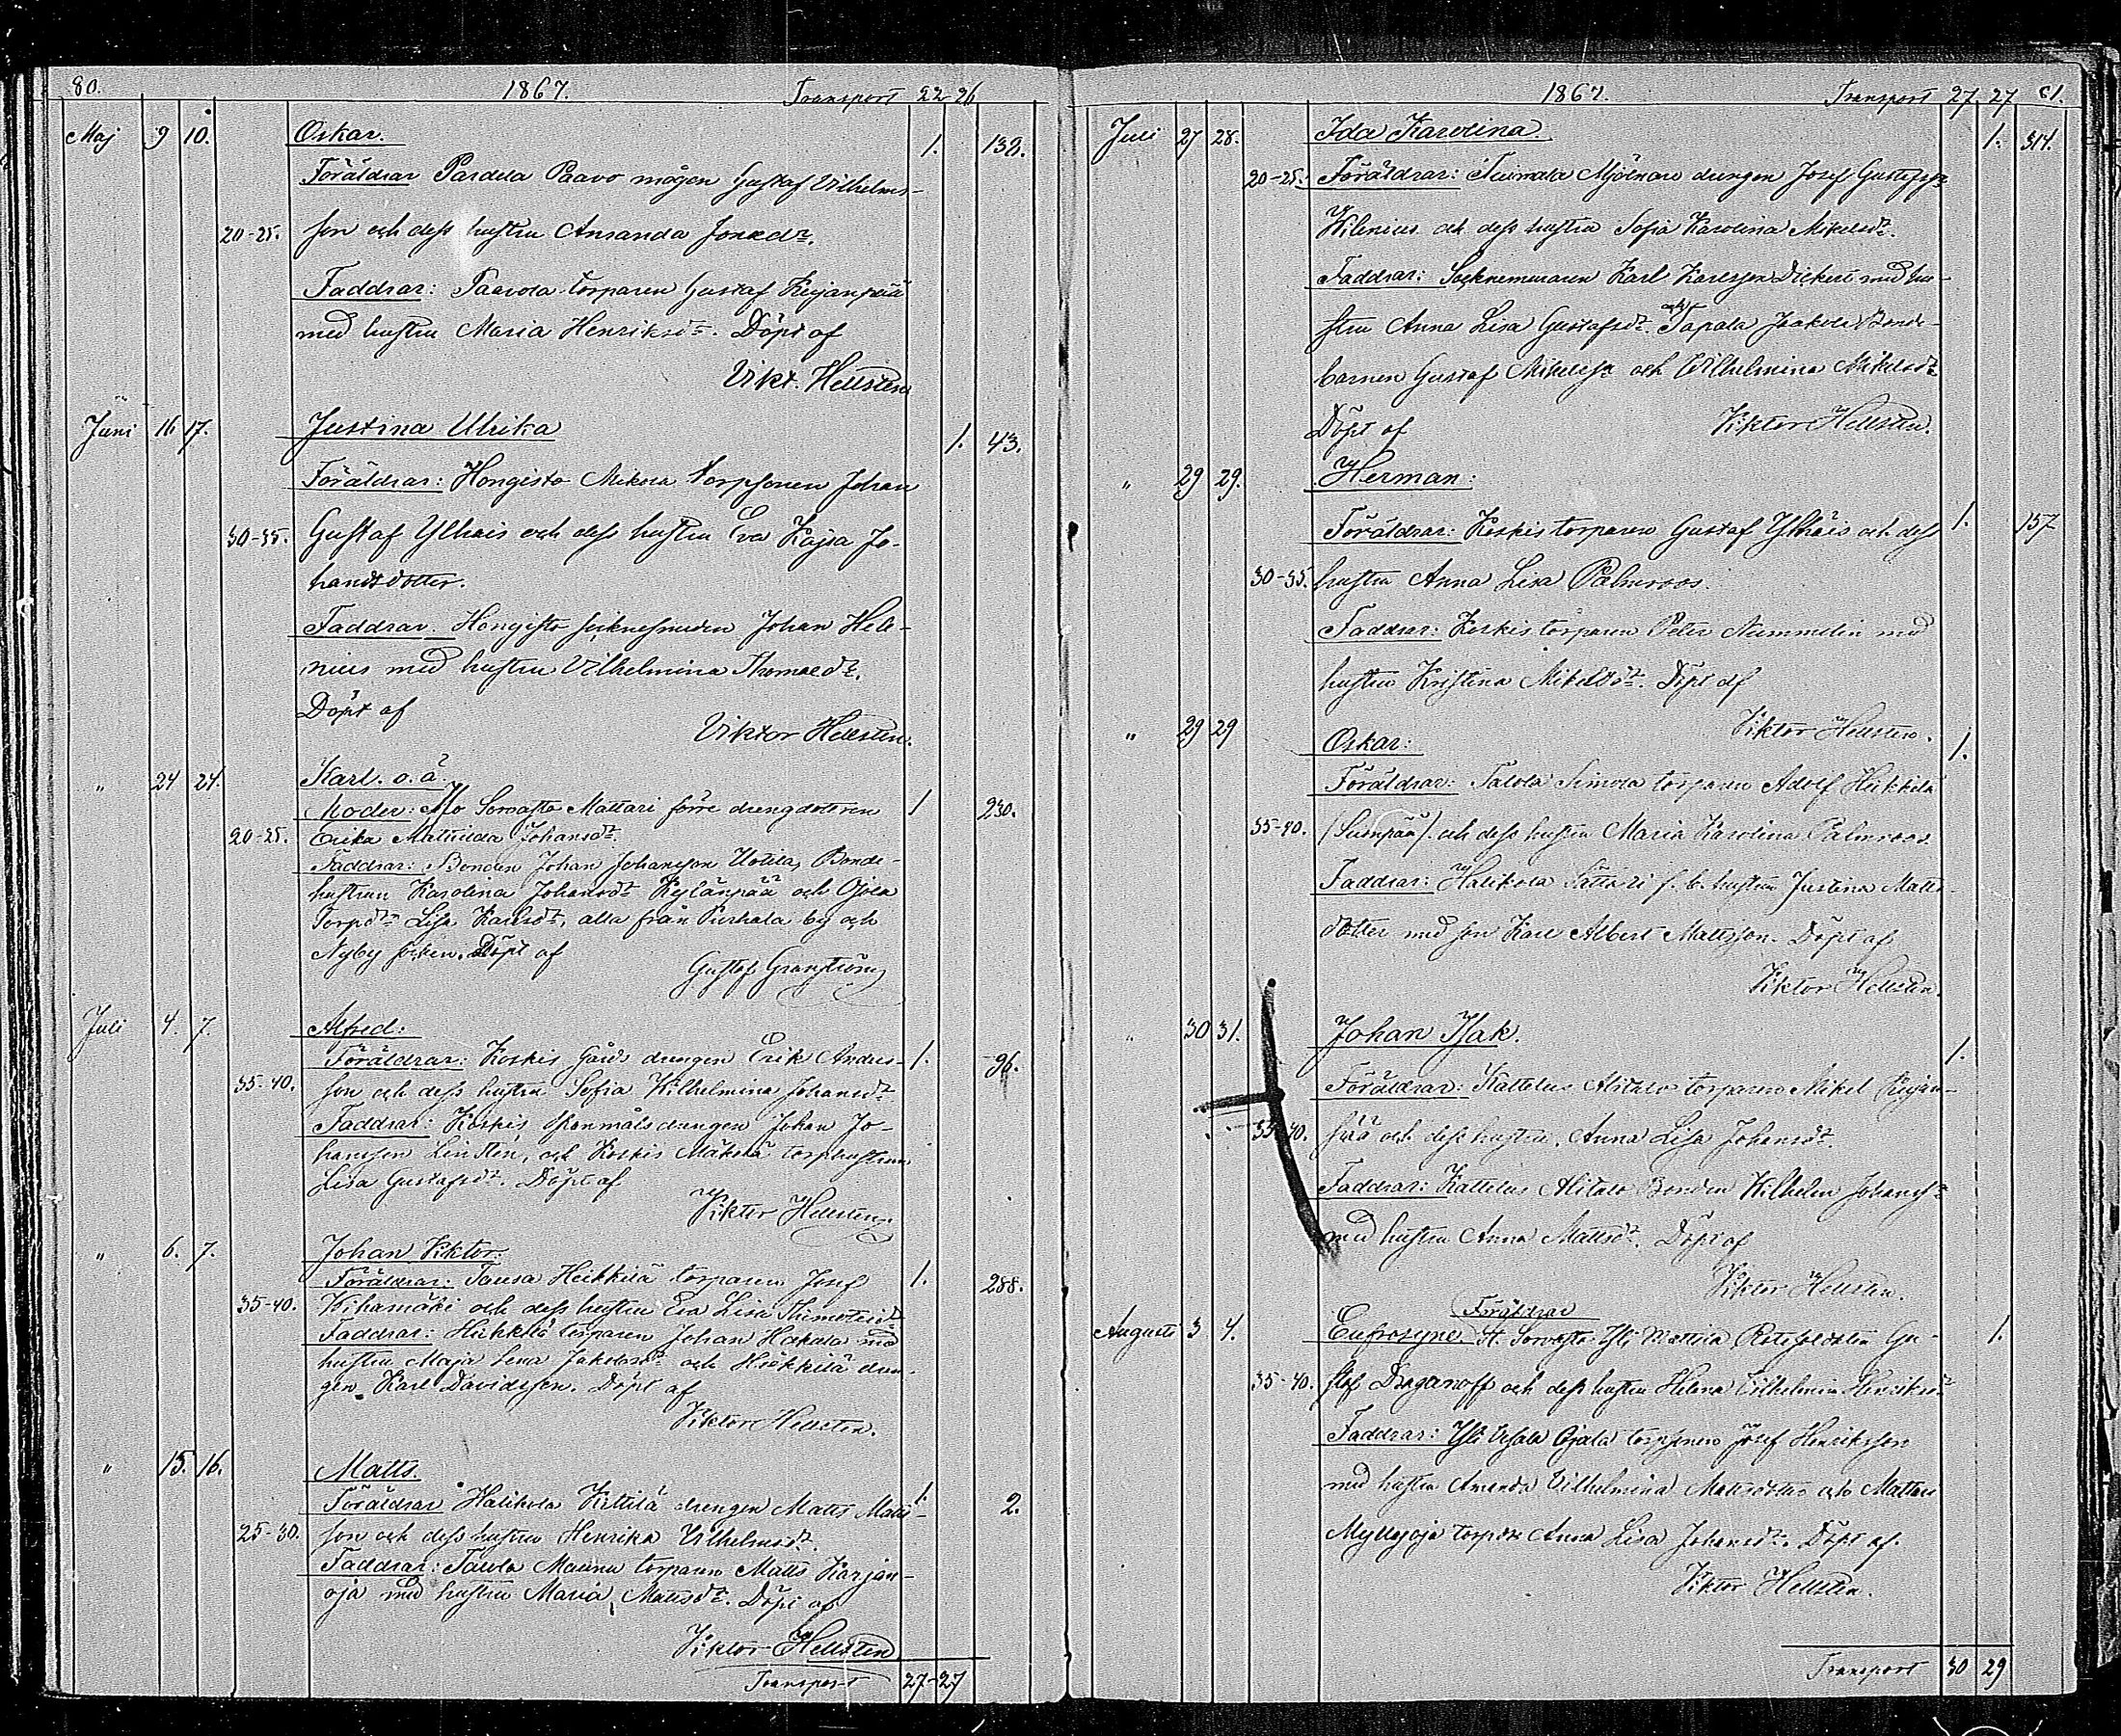 80. 1867. Transport 22 26
Maj 9 10. Oskar. 1. 138.
Föräldrar Pardela Paavo mågen Gustaf Vilhelms-
20-25. son och dess hustru Amanda Jonædr.
Faddrar: Paavola torparen Gustaf Kujanpää
med hustru Maria Henriksdr. Döpt af
Vikt. Hellsten
Juni 16 17. Justina Ulrika 1. 43.
Föräldrar: Hongisto Mikola torpsonen Johan
30-35. Gustaf Ylhais och dess hustru Eva Kajsa Jo-
hansdotter.
Faddrar. Hongisto socknesmeden Johan Hele-
nius med hustru Vilhelmina Thomaedr.
Döpt af
Viktor Hellsten.
" 24 24. Karl. o.ä. 1 230.
Moder: Sorvasto Mattari förre drengdottren
20-25. Erika Mathilda Johansdr
Faddrar: Bonden Johan Johansson Uotila, Bonde-
hustrun Karolina Johansdr Kylänpää och Ojola
Torpdr Lisa Karlsdr, alla från Purhala by och
Nyby socken. Döpt af
Gustaf Granström
Juli 4. 7. Alfred:
Föräldrar: Koskis Gårds drengen Erik Anders- 1. 96.
35-40. son och dess hustru Sofia Wilhelmina Johansdr
Faddrar: Koskis spanmålsdrengen Johan Jo-
hansson Lindsten, och Koskis Mäkelä torphustrun
Lisa Gustafsdr. Döpt af
Viktor Hellsten.
" 6. 7. Johan Viktor.
Föräldrar: Tausa Heikkilä torparen Josef 1. 288.
35-40. Wihamäki och dess hustru Eva Lisa Thimoteidr
Faddrar: Heikkilä torparen Johan Hakala med
hustru Maja Lena Jakobsdr och Heikkilä dren-
gen Karl Davidsson. Döpt af
Viktor Hellsten.
" 15. 16. Matts.
Föräldrar Halikola Kittilä drengen Matts Matts- 1. 2.
25-30. son och dess hustru Henrika Vilhelmsdr.
Faddrar: Talola Maunu torparen Matts Karjan-
oja med hustru Maria Mattsdr. Döpt af
Viktor Hellsten
Transport 27-27
1867. Transport 27 27 81.
Juli 27 28. Ida Karolina 1. 314.
20-25. Föräldrar: Mjölnare drengen Josef Gustafssn
Wilenius och dess hustru Sofia Karolina Mikelsdr.
Faddrar: Karl Karlsson Dickert med hu-
stru Anna Lisa Gustafsdr och Tapala Jaakola Bonde-
barnen Gustaf Mikelssn och Vilhelmina Mikelsdr
Döpt af Viktor Hellsten.
" 29 29. Herman:
Föräldrar: Koskis torparen Gustaf Ylhäis och dess 1. 157
30-35. hustru Anna Lisa Palmroos.
Faddrar: Koskis torparen Peter Nummelin med
hustru Kristina Mikelsdr. Döpt af
Viktor Hellsten.
" 29 29 Oskar: 1.
Föräldrar: Talola Simola torparen Adolf Heikkilä
35-40. (Suonpää) och dess hustru Maria Karolina Palmroos.
Faddrar: Halikola Sättäri f. b. hustru Justina Matts-
dotter med son Karl Albert Mattsson. Döpt af
Viktor Hellsten.
" 30 31. Johan Isak. 1.
Föräldrar: Kattelus Alitalo torparen Mikel Kujan-
35-40. pää och dess hustru Anna Lisa Johansdr.
Faddrar: Kattelus Alitalo Bonden Wilhelm Johanssn
med hustru Anna Mattsdr. Döpt af
Viktor Hellsten.
Föräldrar
Augusti 3 4. Eufrosyne St. Sorvasto Yli Mattila Gu- 1.
35-40. staf Draganoff och dess hustru Helena Vilhelmina Henriksdr
Faddrar: Yli Ojala torpsonen Josef Henriksson
med hustru Amanda Vilhelmina Mattsdotter och Mattari
Myllyoja torpdr Anna Lisa Johansdr. Döpt af.
Viktor Hellsten.
Transport 30 29